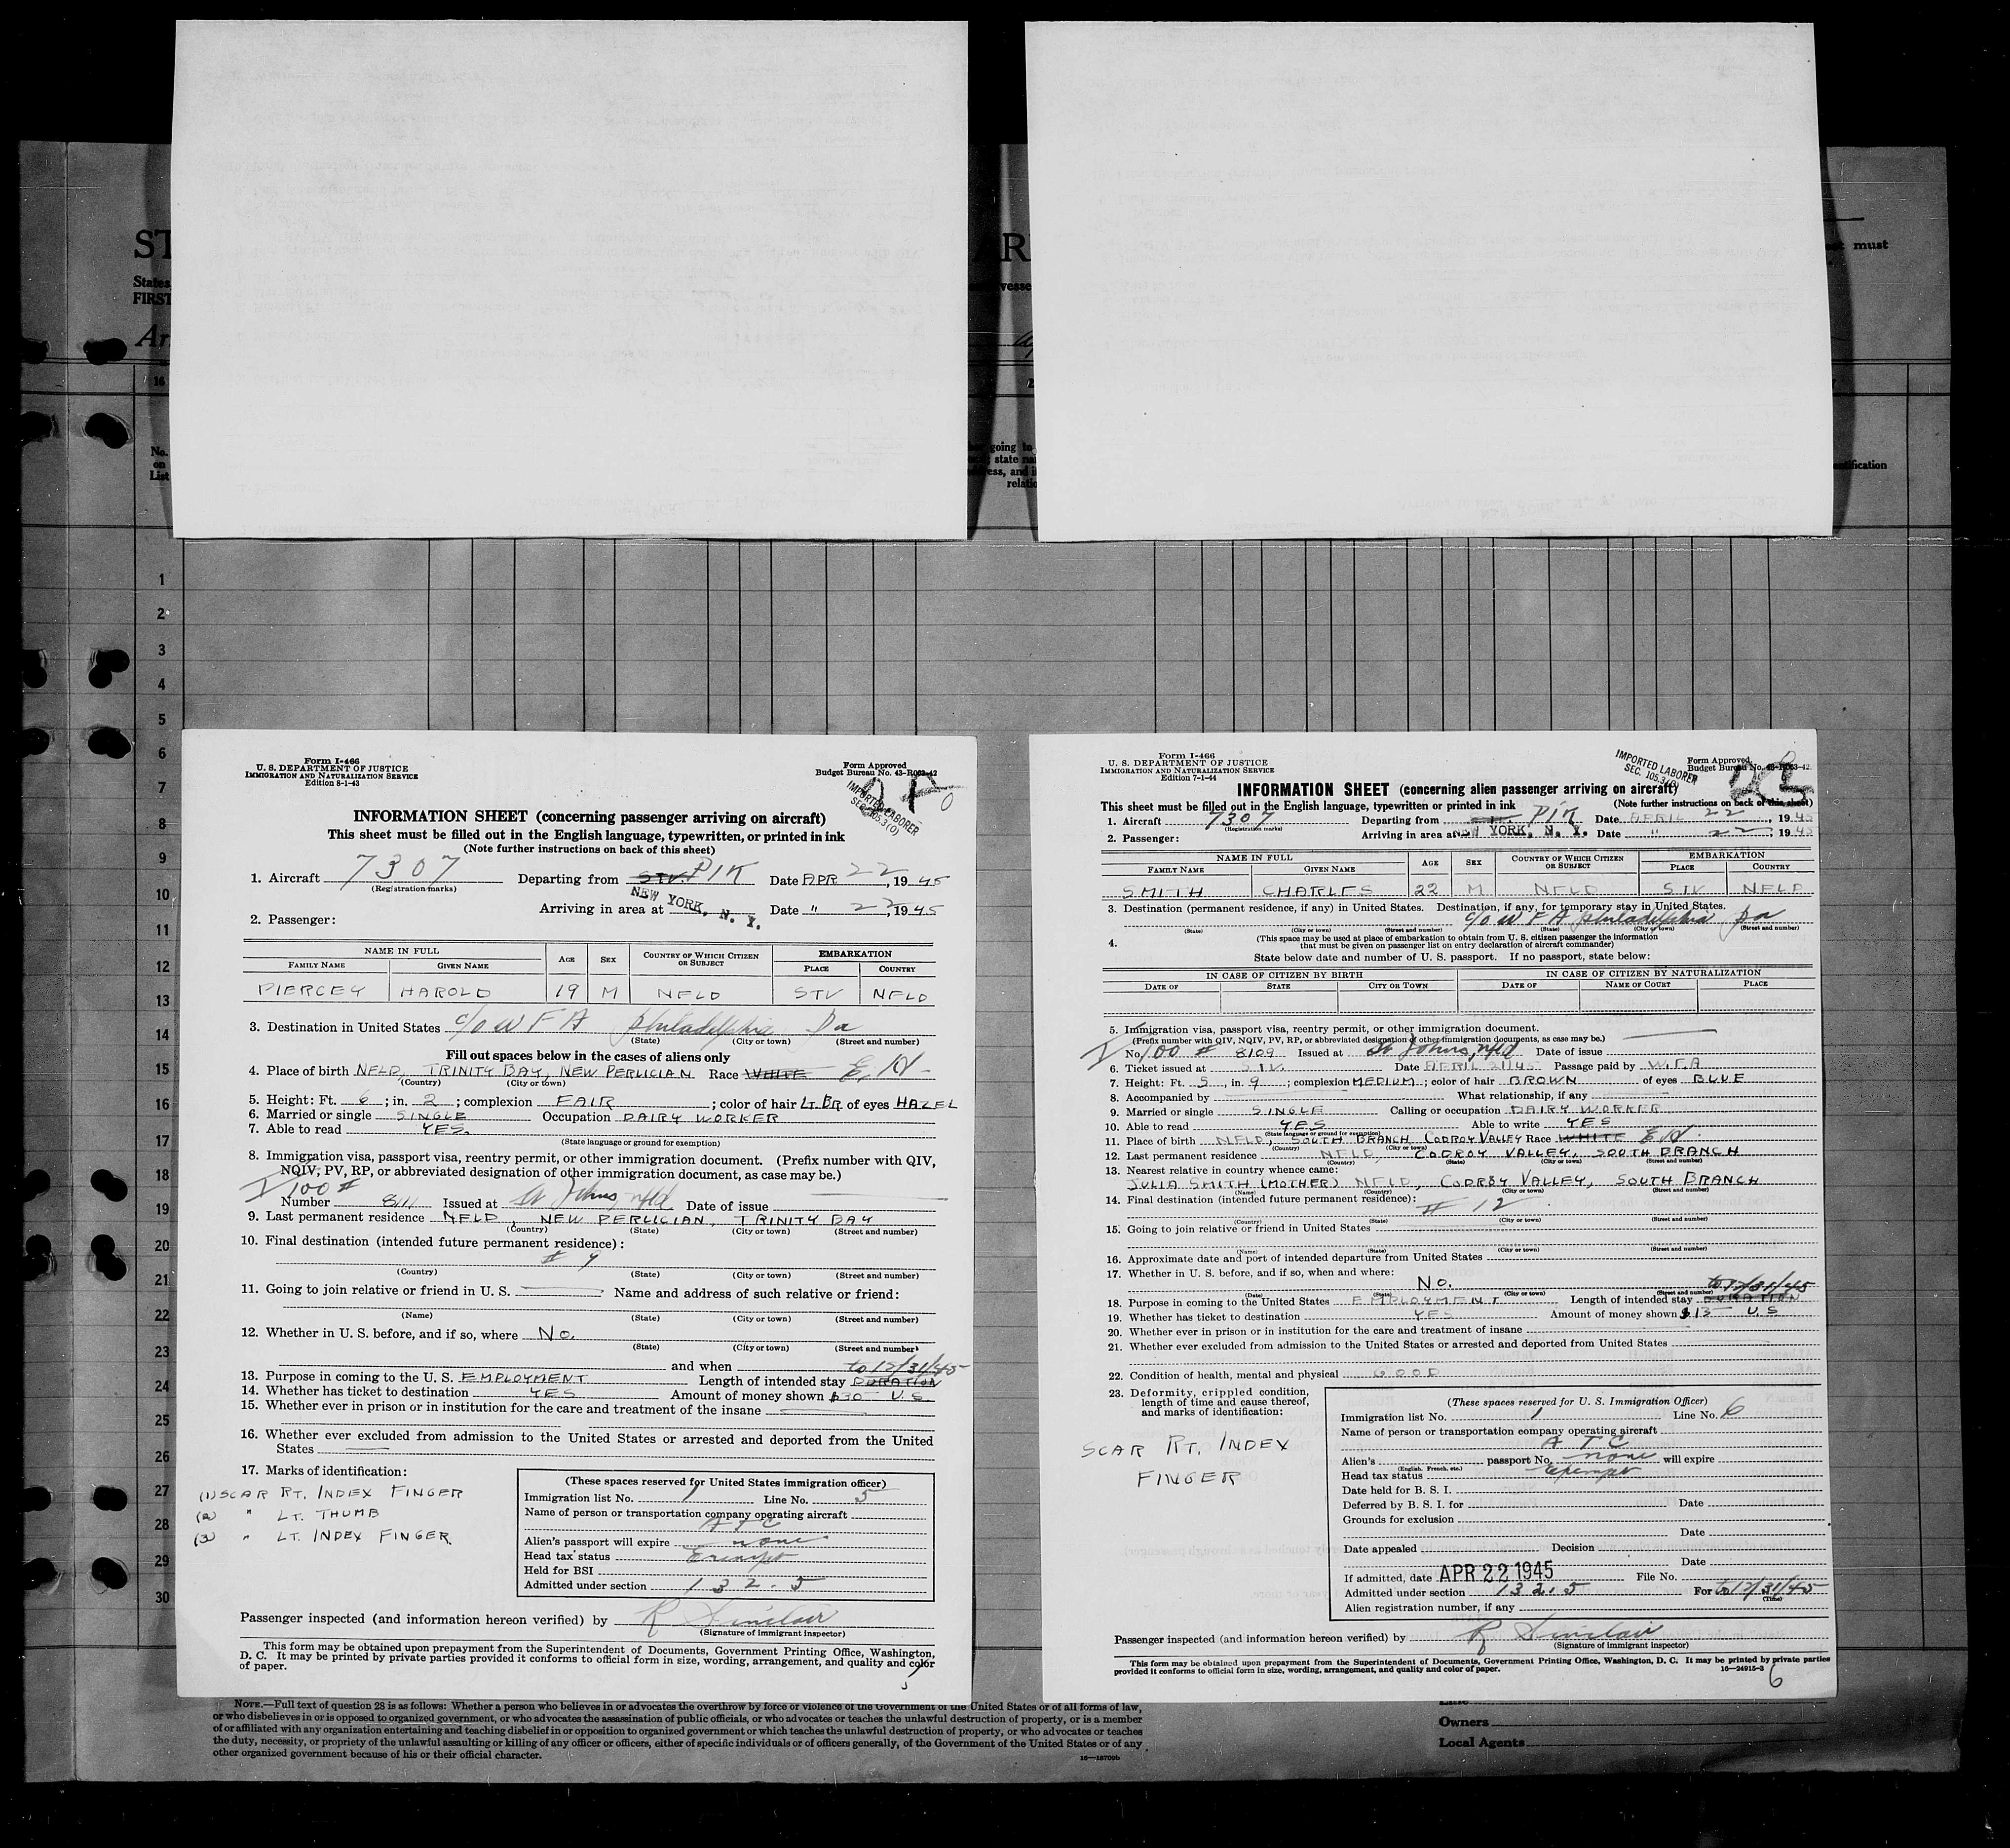 ST
AR
must
States
vesse
FIRST
Ar
16
No.
on
List
going to
; state na
ess, and i
relatio
ntification
1
2
3
4
5
6
7
8
9
10
11
12
13
14
15
16
17
18
19
20
21
22
23
24
25
26
27
28
29
30
Form I-466
U. S. DEPARTMENT OF JUSTICE
IMMIGRATION AND NATURALIZATION SERVICE
Edition 8-1-43
Form Approved
Budget Bureau No. 43-R063-42
IMPORTED LABORER
SEC. 105.3(0)
INFORMATION SHEET (concerning passenger arriving on aircraft)
This sheet must be filled out in the English language, typewritten, or printed in ink
(Note further instructions on back of this sheet)
1. Aircraft 7307 Departing from STV. PIK Date APR 22, 1945
(Registration marks)
Arriving in area at NEW YORK, N. Y. Date " 22, 1945
2. Passenger:
NAME IN FULL AGE SEX COUNTRY OF WHICH CITIZEN OR SUBJECT EMBARKATION
FAMILY NAME GIVEN NAME PLACE COUNTRY
PIERCEY HAROLD 19 M NFLD STV NFLD
3. Destination in United States c/o W F A Philadelphia Pa
(State) (City or town) (Street and number)
Fill out spaces below in the cases of aliens only
4. Place of birth NFLD, TRINITY BAY, NEW PERLICIAN Race WHITE E, N-
(Country) (City or town)
5. Height: Ft. 6; in. 2; complexion FAIR; color of hair LT. BR of eyes HAZEL
6. Married or single SINGLE Occupation DAIRY WORKER
7. Able to read YES.
(State language or ground for exemption)
8. Immigration visa, passport visa, reentry permit, or other immigration document. (Prefix number with QIV,
NQIV, PV, RP, or abbreviated designation of other immigration document, as case may be.)
I 100 #
Number 8111 Issued at St Johns, nfld Date of issue
9. Last permanent residence NFLD, NEW PERLICIAN, TRINITY BAY
(Country) (State) (City or town) (Street and number)
10. Final destination (intended future permanent residence):
(Country) (State) (City or town) (Street and number)
11. Going to join relative or friend in U. S. Name and address of such relative or friend:
(Name) (State) (City or town) (Street and number)
12. Whether in U. S. before, and if so, where No.
(State) (City or town) (Street and number)
and when to 12/31/45
13. Purpose in coming to the U. S. EMPLOYMENT Length of intended stay DURATION
14. Whether has ticket to destination YES Amount of money shown $30 U. S.
15. Whether ever in prison or in institution for the care and treatment of the insane
16. Whether ever excluded from admission to the United States or arrested and deported from the United
States
17. Marks of identification:
(1) SCAR RT. INDEX FINGER
(2) " LT. THUMB
(3) " LT. INDEX FINGER
(These spaces reserved for United States immigration officer)
Immigration list No. 1 Line No. 5
Name of person or transportation company operating aircraft
A T C
Alien's passport will expire none
Head tax status Exempt
Held for BSI
Admitted under section 132.5
Passenger inspected (and information hereon verified) by R Sinclair
(Signature of immigrant inspector)
This form may be obtained upon prepayment from the Superintendent of Documents, Government Printing Office, Washington,
D. C. It may be printed by private parties provided it conforms to official form in size, wording, arrangement, and quality and color
of paper.
Form I-466
U. S. DEPARTMENT OF JUSTICE
IMMIGRATION AND NATURALIZATION SERVICE
Edition 7-1-44
IMPORTED LABORER
SEC. 105.3(0)
Form Approved
Budget Bureau No. 43-R063-42.
INFORMATION SHEET (concerning alien passenger arriving on aircraft)
This sheet must be filled out in the English language, typewritten or printed in ink (Note further instructions on back of this sheet)
1. Aircraft 7307 Departing from PIK Date APRIL 22, 1945
(Registration marks)
2. Passenger: Arriving in area at NEW YORK, N. Y. Date " 22, 1945
NAME IN FULL AGE SEX COUNTRY OF WHICH CITIZEN OR SUBJECT EMBARKATION
FAMILY NAME GIVEN NAME PLACE COUNTRY
SMITH CHARLES 22 M NFLD STV NFLD
3. Destination (permanent residence, if any) in United States. Destination, if any, for temporary stay in United States.
c/o W F A Philadelphia Pa
(State) (City or town) (Street and number) (State) (City or town) (Street and number)
4. (This space may be used at place of embarkation to obtain from U. S. citizen passenger the information
that must be given on passenger list on entry declaration of aircraft commander)
State below date and number of U. S. passport. If no passport, state below:
IN CASE OF CITIZEN BY BIRTH IN CASE OF CITIZEN BY NATURALIZATION
DATE OF STATE CITY OR TOWN DATE OF NAME OF COURT PLACE
5. Immigration visa, passport visa, reentry permit, or other immigration document.
(Prefix number with QIV, NQIV, PV, RP, or abbreviated designation of other immigration documents, as case may be.)
I No. 100 # 8109 Issued at St Johns, nfld Date of issue
6. Ticket issued at STV. Date APRIL 21/45 Passage paid by W.F.A
7. Height: Ft. 5, in. 9; complexion MEDIUM; color of hair BROWN of eyes BLUE
8. Accompanied by What relationship, if any
9. Married or single SINGLE Calling or occupation DAIRY WORKER
10. Able to read YES Able to write YES
(State language or ground for exemption)
11. Place of birth NFLD, SOUTH BRANCH CODROY VALLEY Race WHITE E N.
(Country) (City or town)
12. Last permanent residence NFLD, CODROY VALLEY, SOUTH BRANCH
(Country) (State) (City or town) (Street and number)
13. Nearest relative in country whence came:
JULIA SMITH (MOTHER) NFLD, CODROY VALLEY, SOUTH BRANCH
(Name) (Country) (City or town) (Street and number)
14. Final destination (intended future permanent residence): # 12
(Country) (State) (City or town) (Street and number)
15. Going to join relative or friend in United States
(Name) (State) (City or town) (Street and number)
16. Approximate date and port of intended departure from United States
17. Whether in U. S. before, and if so, when and where: No.
(Date) (State) (City or town) (Street and number)
to 12/31/45
18. Purpose in coming to the United States EMPLOYMENT Length of intended stay DURATION
19. Whether has ticket to destination YES Amount of money shown $13 U. S
20. Whether ever in prison or in institution for the care and treatment of insane
21. Whether ever excluded from admission to the United States or arrested and deported from United States
22. Condition of health, mental and physical GOOD
23. Deformity, crippled condition,
length of time and cause thereof,
and marks of identification:
SCAR RT. INDEX
FINGER
(These spaces reserved for U. S. Immigration Officer)
Immigration list No. 1 Line No. 6
Name of person or transportation company operating aircraft
A T C
Alien's passport No. none will expire
(English, French, etc.)
Head tax status Exempt
Date held for B. S. I.
Deferred by B. S. I. for Date
Grounds for exclusion
Date
Date appealed Decision
Date
If admitted, date APR 22 1945 File No.
Admitted under section 132.5 For to 12/31/45
(Time)
Alien registration number, if any
Passenger inspected (and information hereon verified) by R Sinclair
(Signature of immigrant inspector)
This form may be obtained upon prepayment from the Superintendent of Documents, Government Printing Office, Washington, D. C. It may be printed by private parties
provided it conforms to official form in size, wording, arrangement, and quality and color of paper. 16—24915-2
6
NOTE.—Full text of question 28 is as follows: Whether a person who believes in or advocates the overthrow by force or violence of the Government of the United States or of all forms of law,
or who disbelieves in or is opposed to organized government, or who advocates the assassination of public officials, or who advocates or teaches the unlawful destruction of property, or is a member
of or affiliated with any organization entertaining and teaching disbelief in or opposition to organized government or which teaches the unlawful destruction of property, or who advocates or teaches
the duty, necessity, or propriety of the unlawful assaulting or killing of any officer or officers, either of specific individuals or of officers generally, of the Government of the United States or of any
other organized government because of his or their official character.
16—18700b
Owners
Local Agents